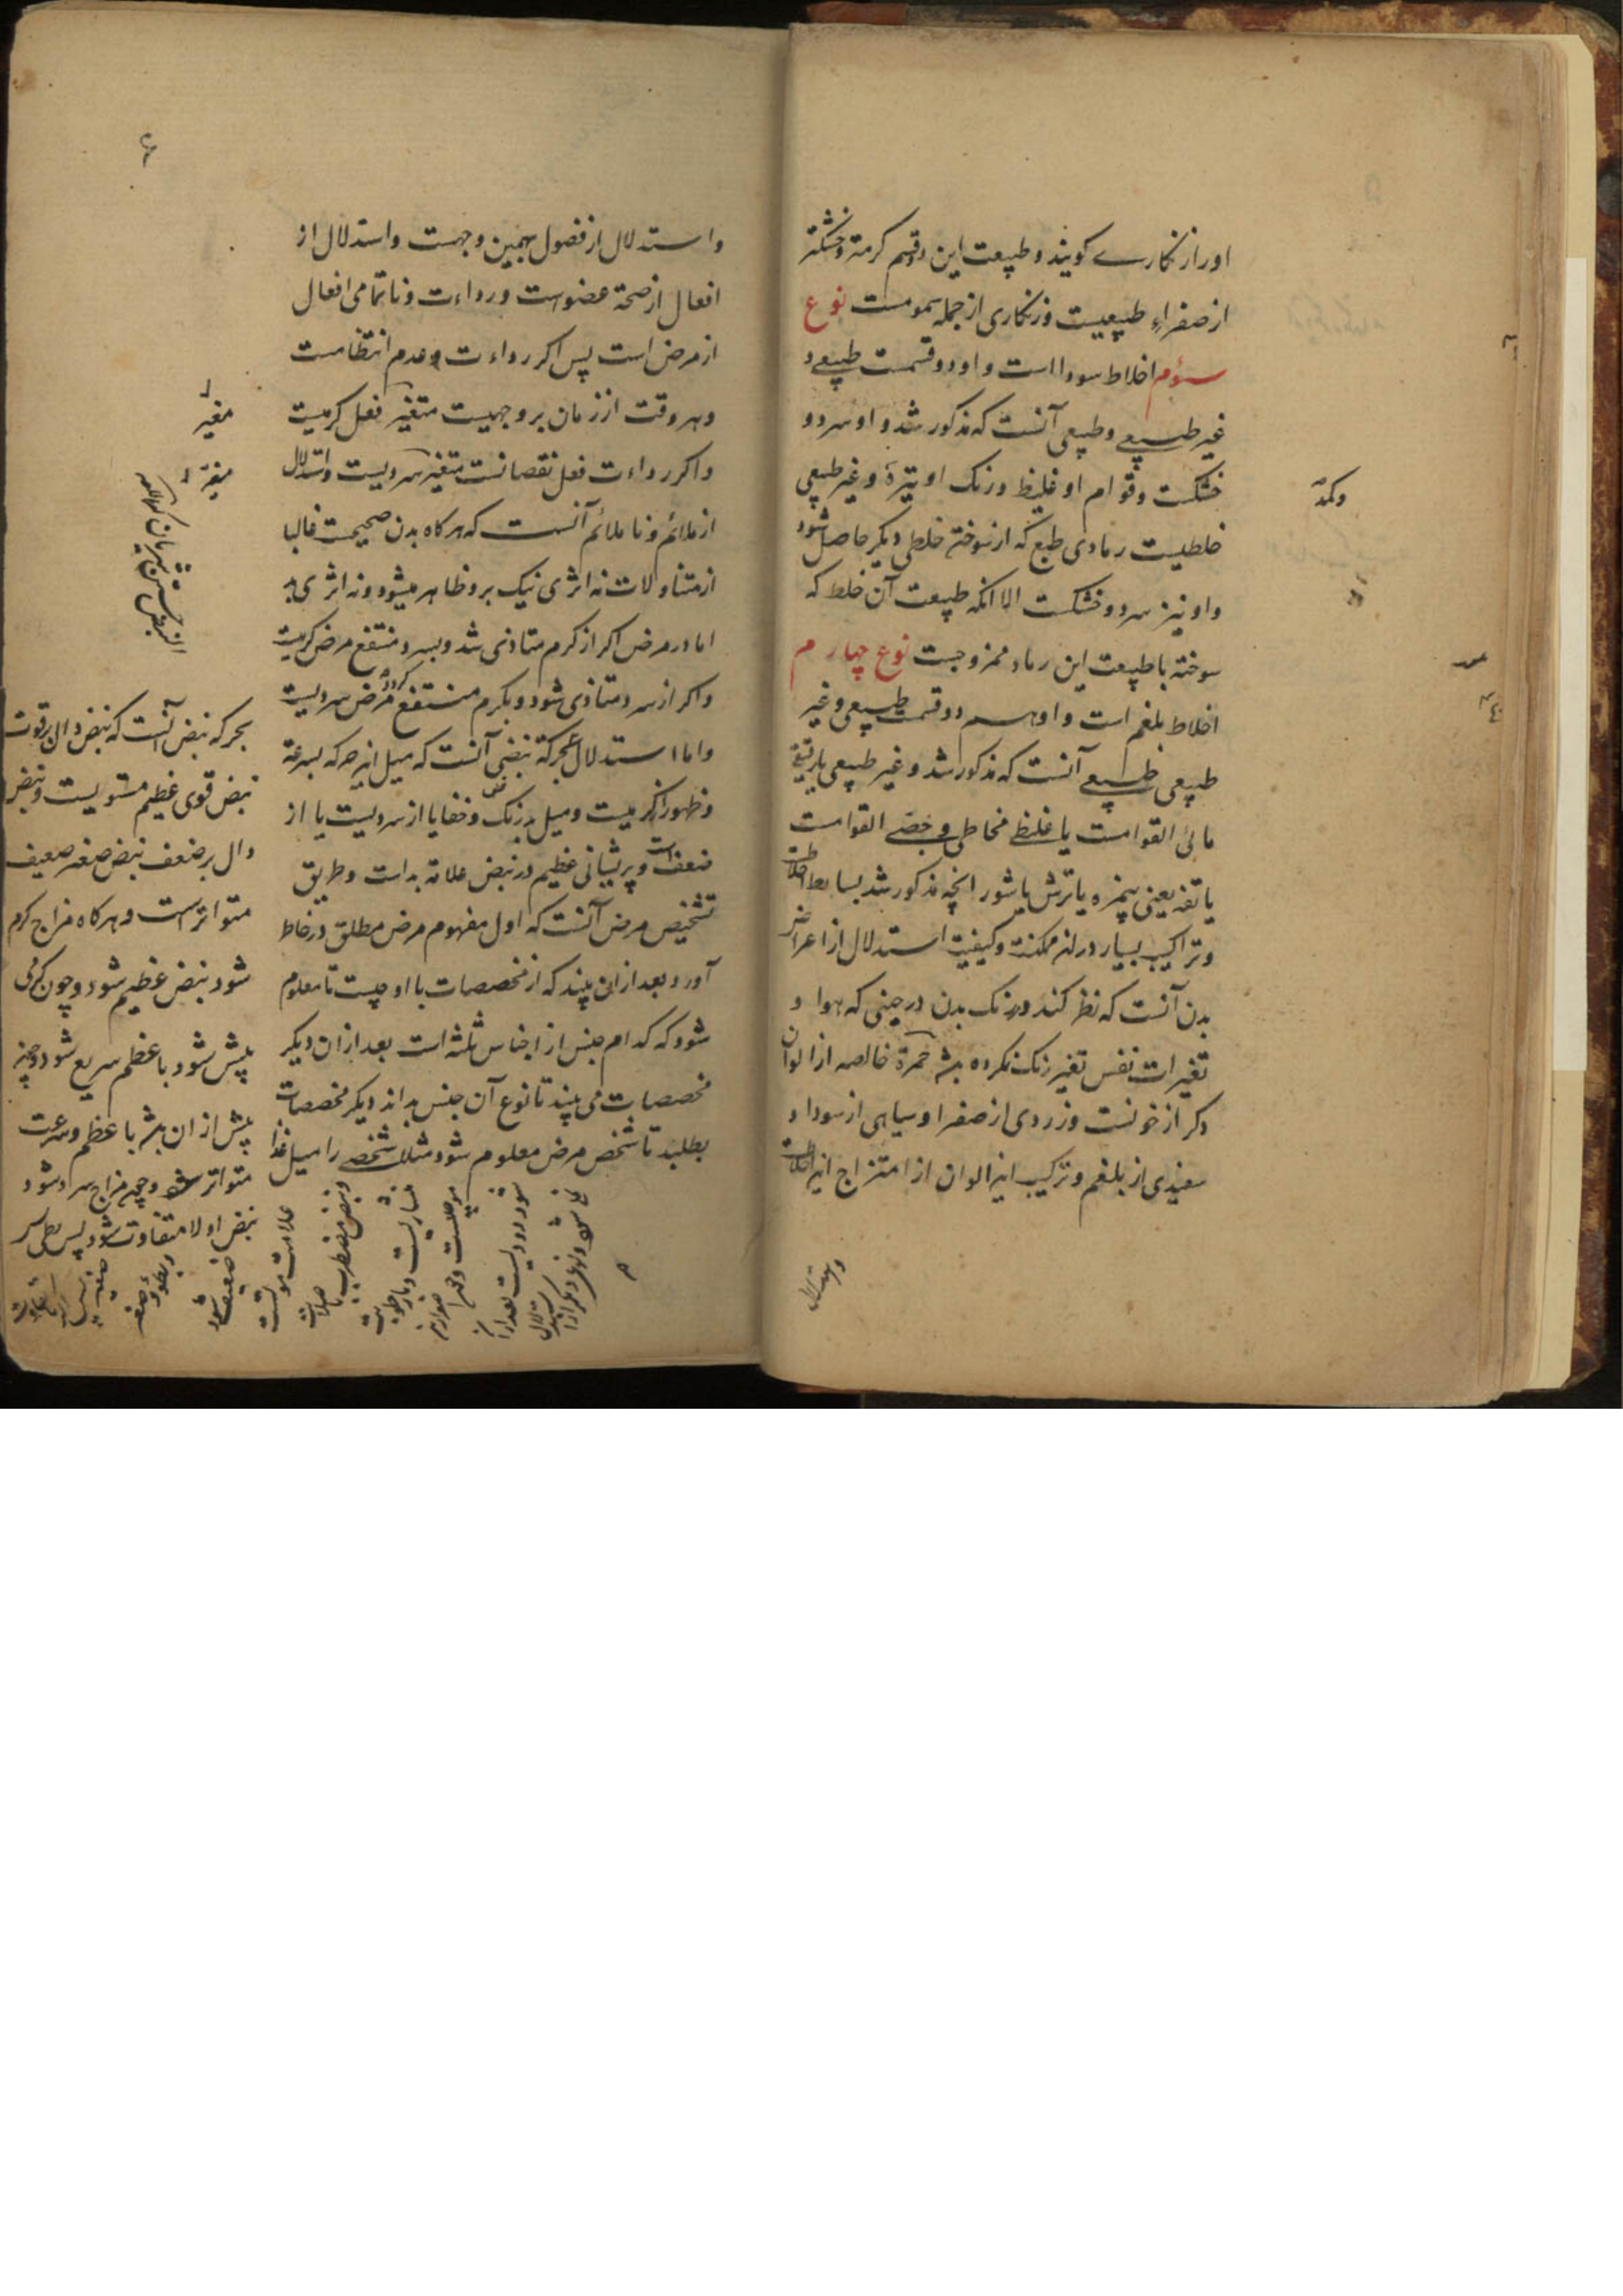 اورا زنکاری کویند و طبیعت این دو قسم کرمتر و خشکتر
از صفراء طبیعیست و زنکاری از جمله سمومست نوع
سوم اخلاط سودا است و او دو قسمت طبیعی و
غیر طبیعی و طبیعی آنست که مذکور شد و او سرد و
خشکست و قوام او غلیظ و رنک او تیره و غیر طبیعی
خلطیست رمادی طبع که از سوختن خلطی دیکر حاصل شود
و او نیز سرد و خشکست الا انکه طبیعت آن خلط که
سوخته با طبیعت این رماد ممزوجست نوع چهارم
اخلاط بلغم است و او بر دو قسمت طبیعی و غیر
طبیعی طبیعی آنست که مذکور شد و غیر طبیعی یا رقیق
مائی القوامست یا غلیظ مخاطی و جصی القوامست
یا تفه یعنی بیمزه یا ترش یا شور انچه مذکور شد بسایط اخلاط
و تراکیب بسیار درین ممکنست و کیفیت استدلال از اعراض
بدن آنست که نظر کند در رنک بدن در حینی که هوا و
تغیرات نفس تغیر رنک نکرده باشد حمرة خالصه از الوان
دکر از خونست و زردی از صفرا و سیاهی از سودا و
سفیدی از بلغم و ترکیب این الوان از امتزاج این اخلاط
و استدلال
و استدلال از فضول بهمین وجهست و استدلال از
افعال از صحة عضوست و رداءت و ناتمامی افعال
از مرض است پس اکر رداءت و عدم انتظامست
و هر وقت از زمان بر وجهیست متغیر فعل کرمیست
و اکر رداءت فعل نقصانست متغیر سردیست و استدلال
از ملائم و ناملائم آنست که هرکاه بدن صحیحست غالبا
از متناولات نه اثری نیک برو ظاهر میشود و نه اثری بد
اما در مرض اکر از کرم متاذی شد و بسرد منتفع مرض کرمیست
و اکر از سرد متاذی شود و بکرم منتفع کردد مرض سردیست
و اما استدلال بحرکة نبض آنست که میل این حرکه بسرعة
و ظهور از کرمیست و میل بدرنک و خفا یا از سردیست یا از
ضعف است و پریشانی عظیم در نبض علامة بد است و طریق
تشخیص مرض آنست که اول مفهوم مرض مطلق در خاطر
آورد و بعد ازان بیند که از مخصصات با او چیست تا معلوم
شود که کدام جنس از اجناس ثلثه است بعد ازان دیکر
مخصصات می بیند تا نوع آن جنس بداند دیکر مخصصات
بطلبد تا شخص مرض معلوم شود مثلا شخصی را میل غذا
مغیر
مغیر
بحرکه نبض آنست که نبض دال بر قوت
نبض قوی عظیم مستویست و نبض
دال بر ضعف نبض صغیر ضعیف
متواتر است و هرکاه مزاج کرم
شود نبض عظیم شود و چون کرمی
بیش شود با عظم سریع شود و چون
بیش از ان باشد با عظم و سرعت
متواتر شود و چون مزاج سرد شود
نبض اولا متفاوت شود پس بطی پس